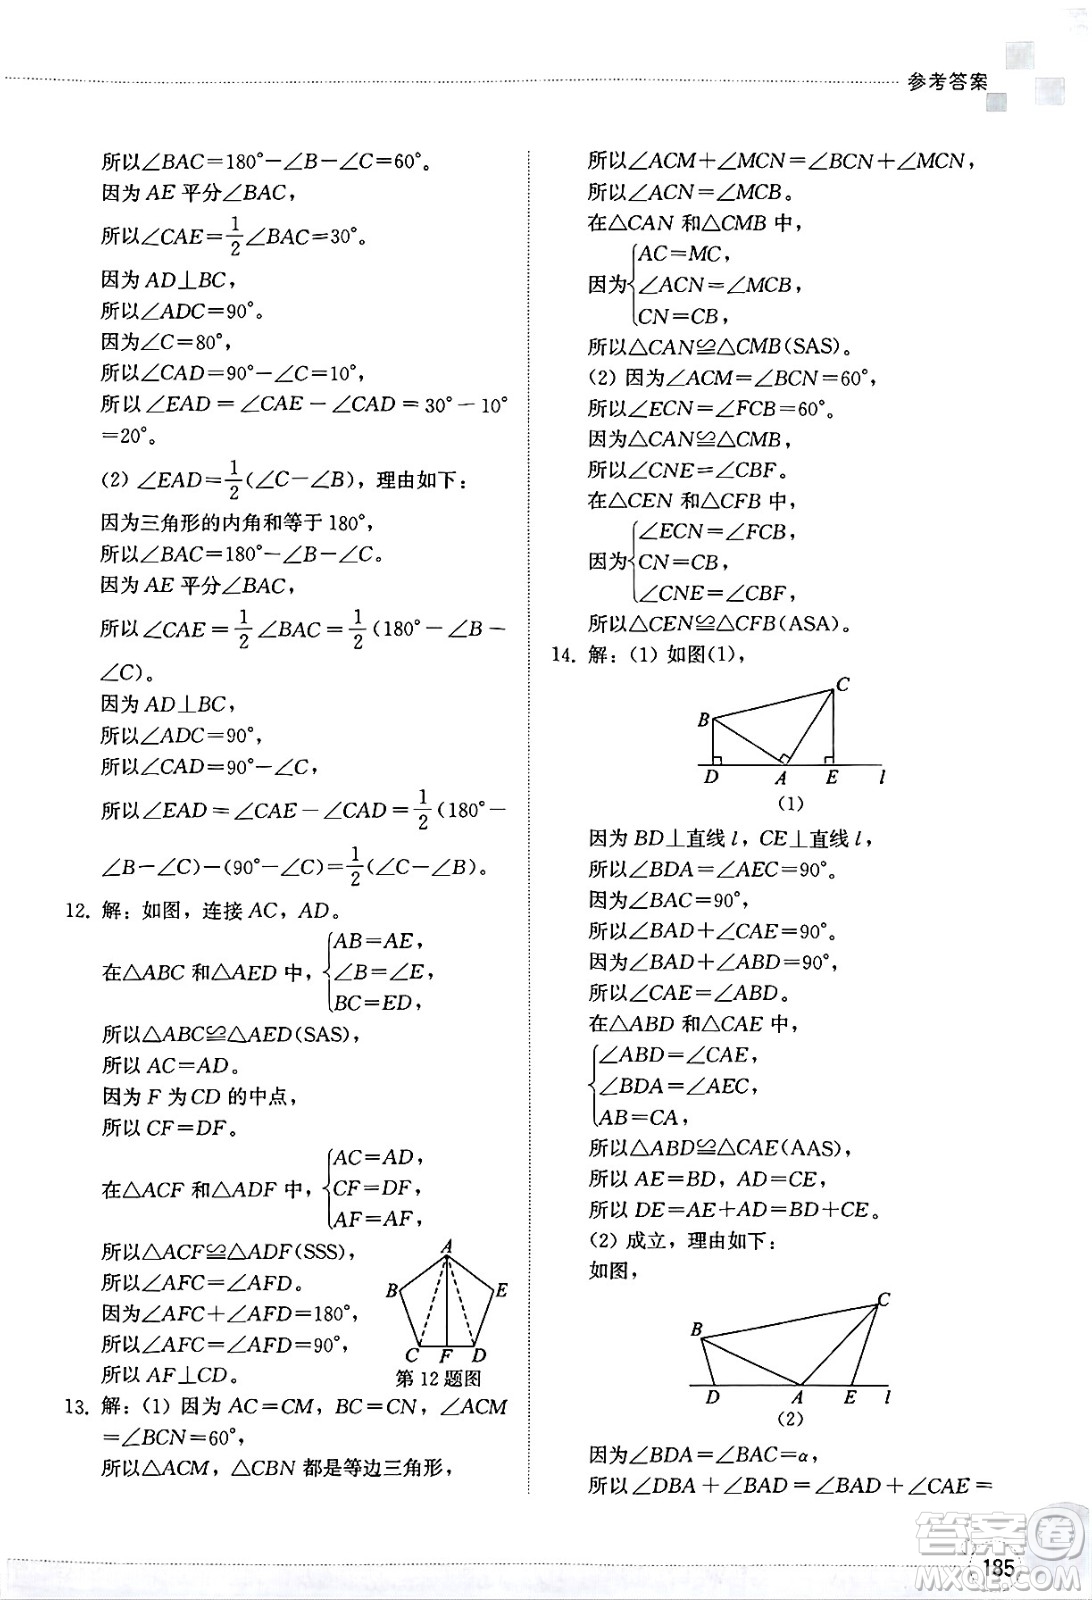 参考答案
所以∠BAC=180°-∠B-∠C=60°。
因为 AE 平分∠BAC,
所以∠CAE=1/2∠BAC=30°。
因为 AD⊥BC,
所以∠ADC=90°。
因为∠C=80°,
所以∠CAD=90°-∠C=10°,
所以∠EAD=∠CAE-∠CAD=30°-10°
=20°。
(2) ∠EAD=1/2(∠C-∠B),理由如下:
因为三角形的内角和等于180°,
所以∠BAC=180°-∠B-∠C。
因为 AE 平分∠BAC,
所以∠CAE=1/2∠BAC=1/2(180°-∠B-
∠C)。
因为 AD⊥BC,
所以∠ADC=90°,
所以∠CAD=90°-∠C,
所以∠EAD=∠CAE-∠CAD=1/2(180°-
∠B-∠C)-(90°-∠C)=1/2(∠C-∠B)。
12. 解:如图,连接 AC,AD。
在△ABC 和△AED 中,{AB=AE,
∠B=∠E,
BC=ED,
所以△ABC≌△AED(SAS),
所以 AC=AD。
因为 F 为 CD 的中点,
所以 CF=DF。
在△ACF 和△ADF 中,{AC=AD,
CF=DF,
AF=AF,
所以△ACF≌△ADF(SSS),
所以∠AFC=∠AFD。
因为∠AFC+∠AFD=180°,
所以∠AFC=∠AFD=90°,
所以 AF⊥CD。
A
B
E
C F D
第12题图
13. 解:(1) 因为 AC=CM,BC=CN,∠ACM
=∠BCN=60°,
所以△ACM,△CBN 都是等边三角形,
所以∠ACM+∠MCN=∠BCN+∠MCN,
所以∠ACN=∠MCB。
在△CAN 和△CMB 中,
因为{AC=MC,
∠ACN=∠MCB,
CN=CB,
所以△CAN≌△CMB(SAS)。
(2) 因为∠ACM=∠BCN=60°,
所以∠ECN=∠FCB=60°。
因为△CAN≌△CMB,
所以∠CNE=∠CBF。
在△CEN 和△CFB 中,
因为{∠ECN=∠FCB,
CN=CB,
∠CNE=∠CBF,
所以△CEN≌△CFB(ASA)。
14. 解:(1) 如图(1),
C
B
D A E l
(1)
因为 BD⊥直线 l,CE⊥直线 l,
所以∠BDA=∠AEC=90°。
因为∠BAC=90°,
所以∠BAD+∠CAE=90°。
因为∠BAD+∠ABD=90°,
所以∠CAE=∠ABD。
在△ABD 和△CAE 中,
{∠ABD=∠CAE,
∠BDA=∠AEC,
AB=CA,
所以△ABD≌△CAE(AAS),
所以 AE=BD,AD=CE,
所以 DE=AE+AD=BD+CE。
(2) 成立,理由如下:
如图,
C
B
D A E l
(2)
因为∠BDA=∠BAC=α,
所以∠DBA+∠BAD=∠BAD+∠CAE=
答案卷
185
MXQE.COM